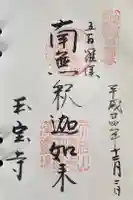 平成廿四年十二月二日
五百羅漢
南無釈迦如来
玉宝寺